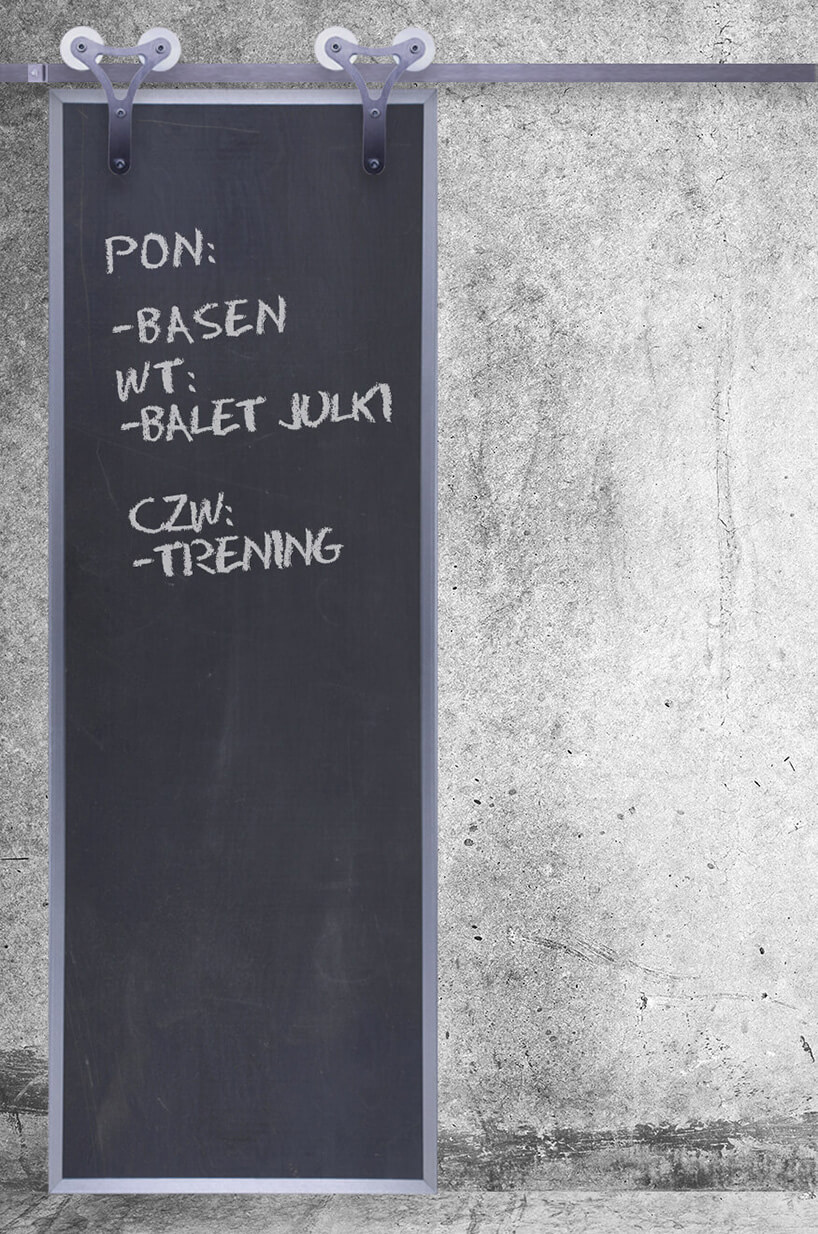 PON:
-BASEN
WT:
-BALET JULKI
CZW:
-TRENING